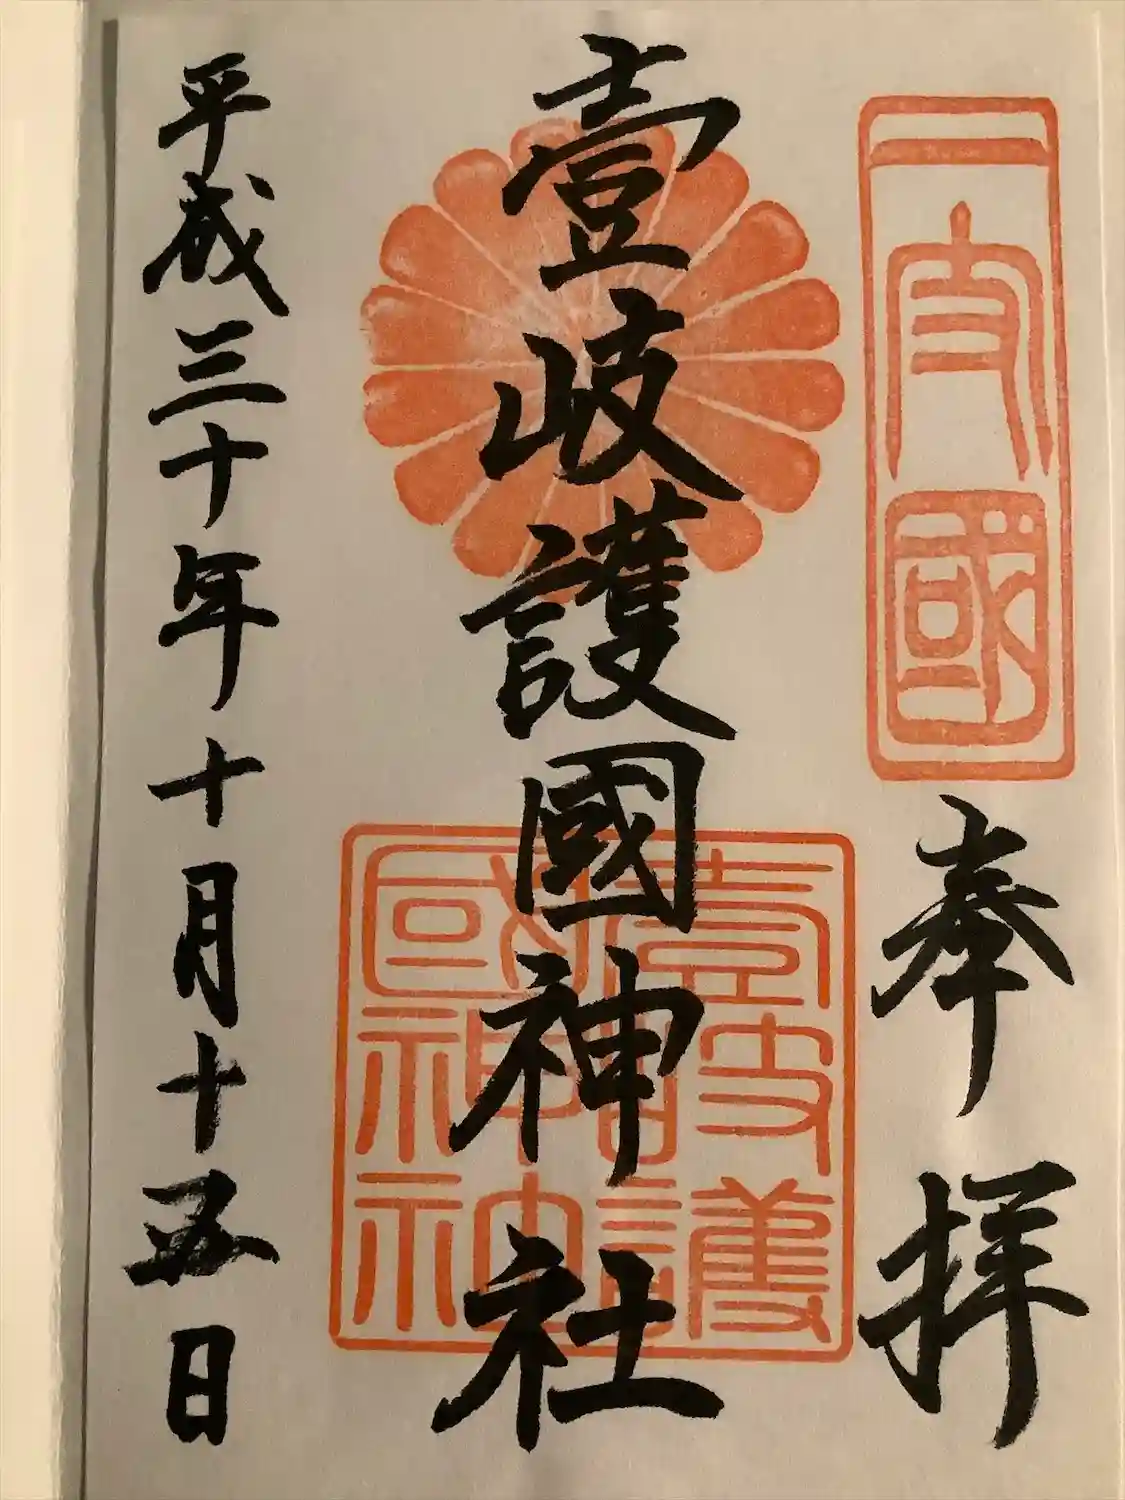 一支國
奉拝
壹岐護國神社
壹支護國神社
平成三十年十月十五日